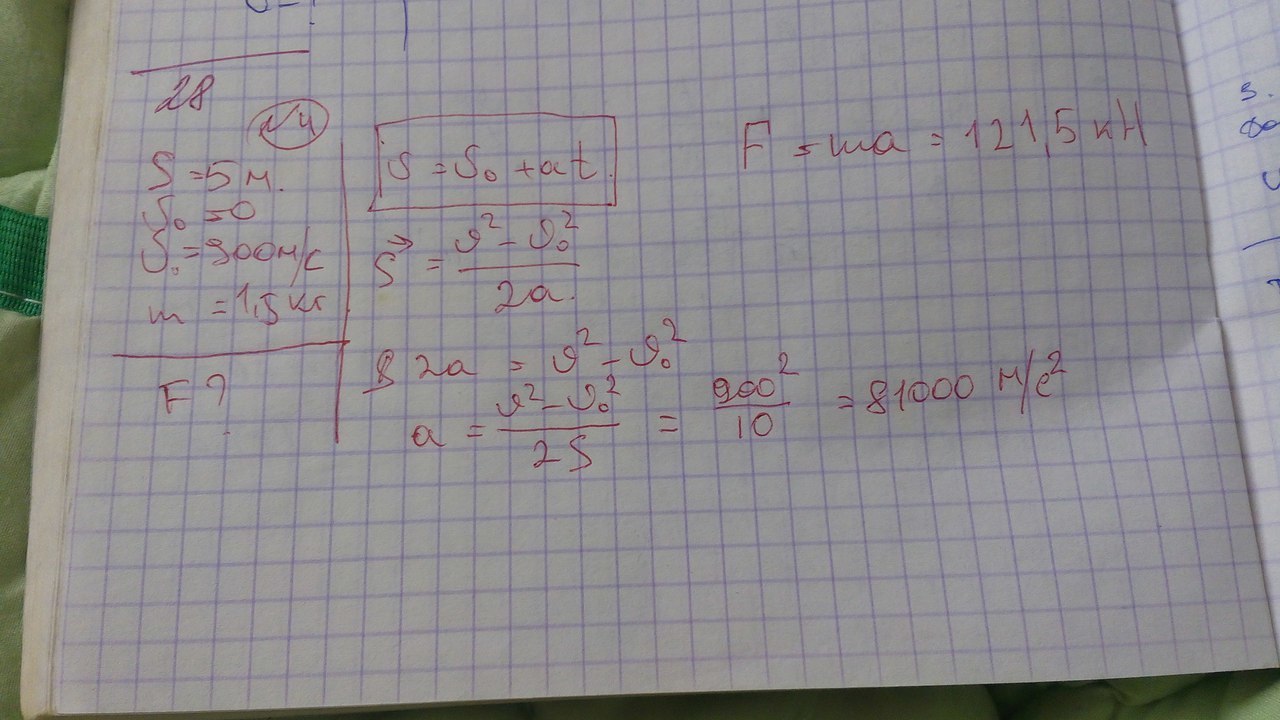 28
N4
S = 5 м.
υ₀ = 0
υ. = 900 м/с
m = 1,5 кг
F ?
υ = υ₀ + at.
S⃗ = (υ² - υ₀²) / 2a.
S 2a = υ² - υ₀²
a = (υ² - υ₀²) / 2S = 900² / 10 = 81000 м/с²
F = ma = 121,5 кН